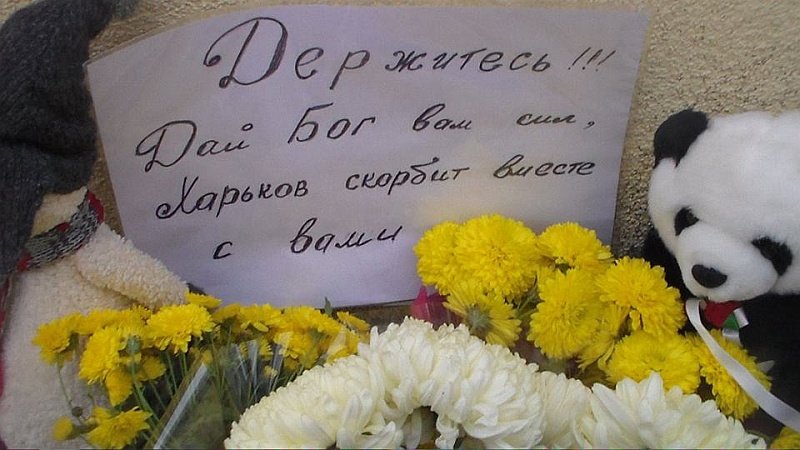 Держитесь!!!
Дай Бог вам сил,
Харьков скорбит вместе
с вами